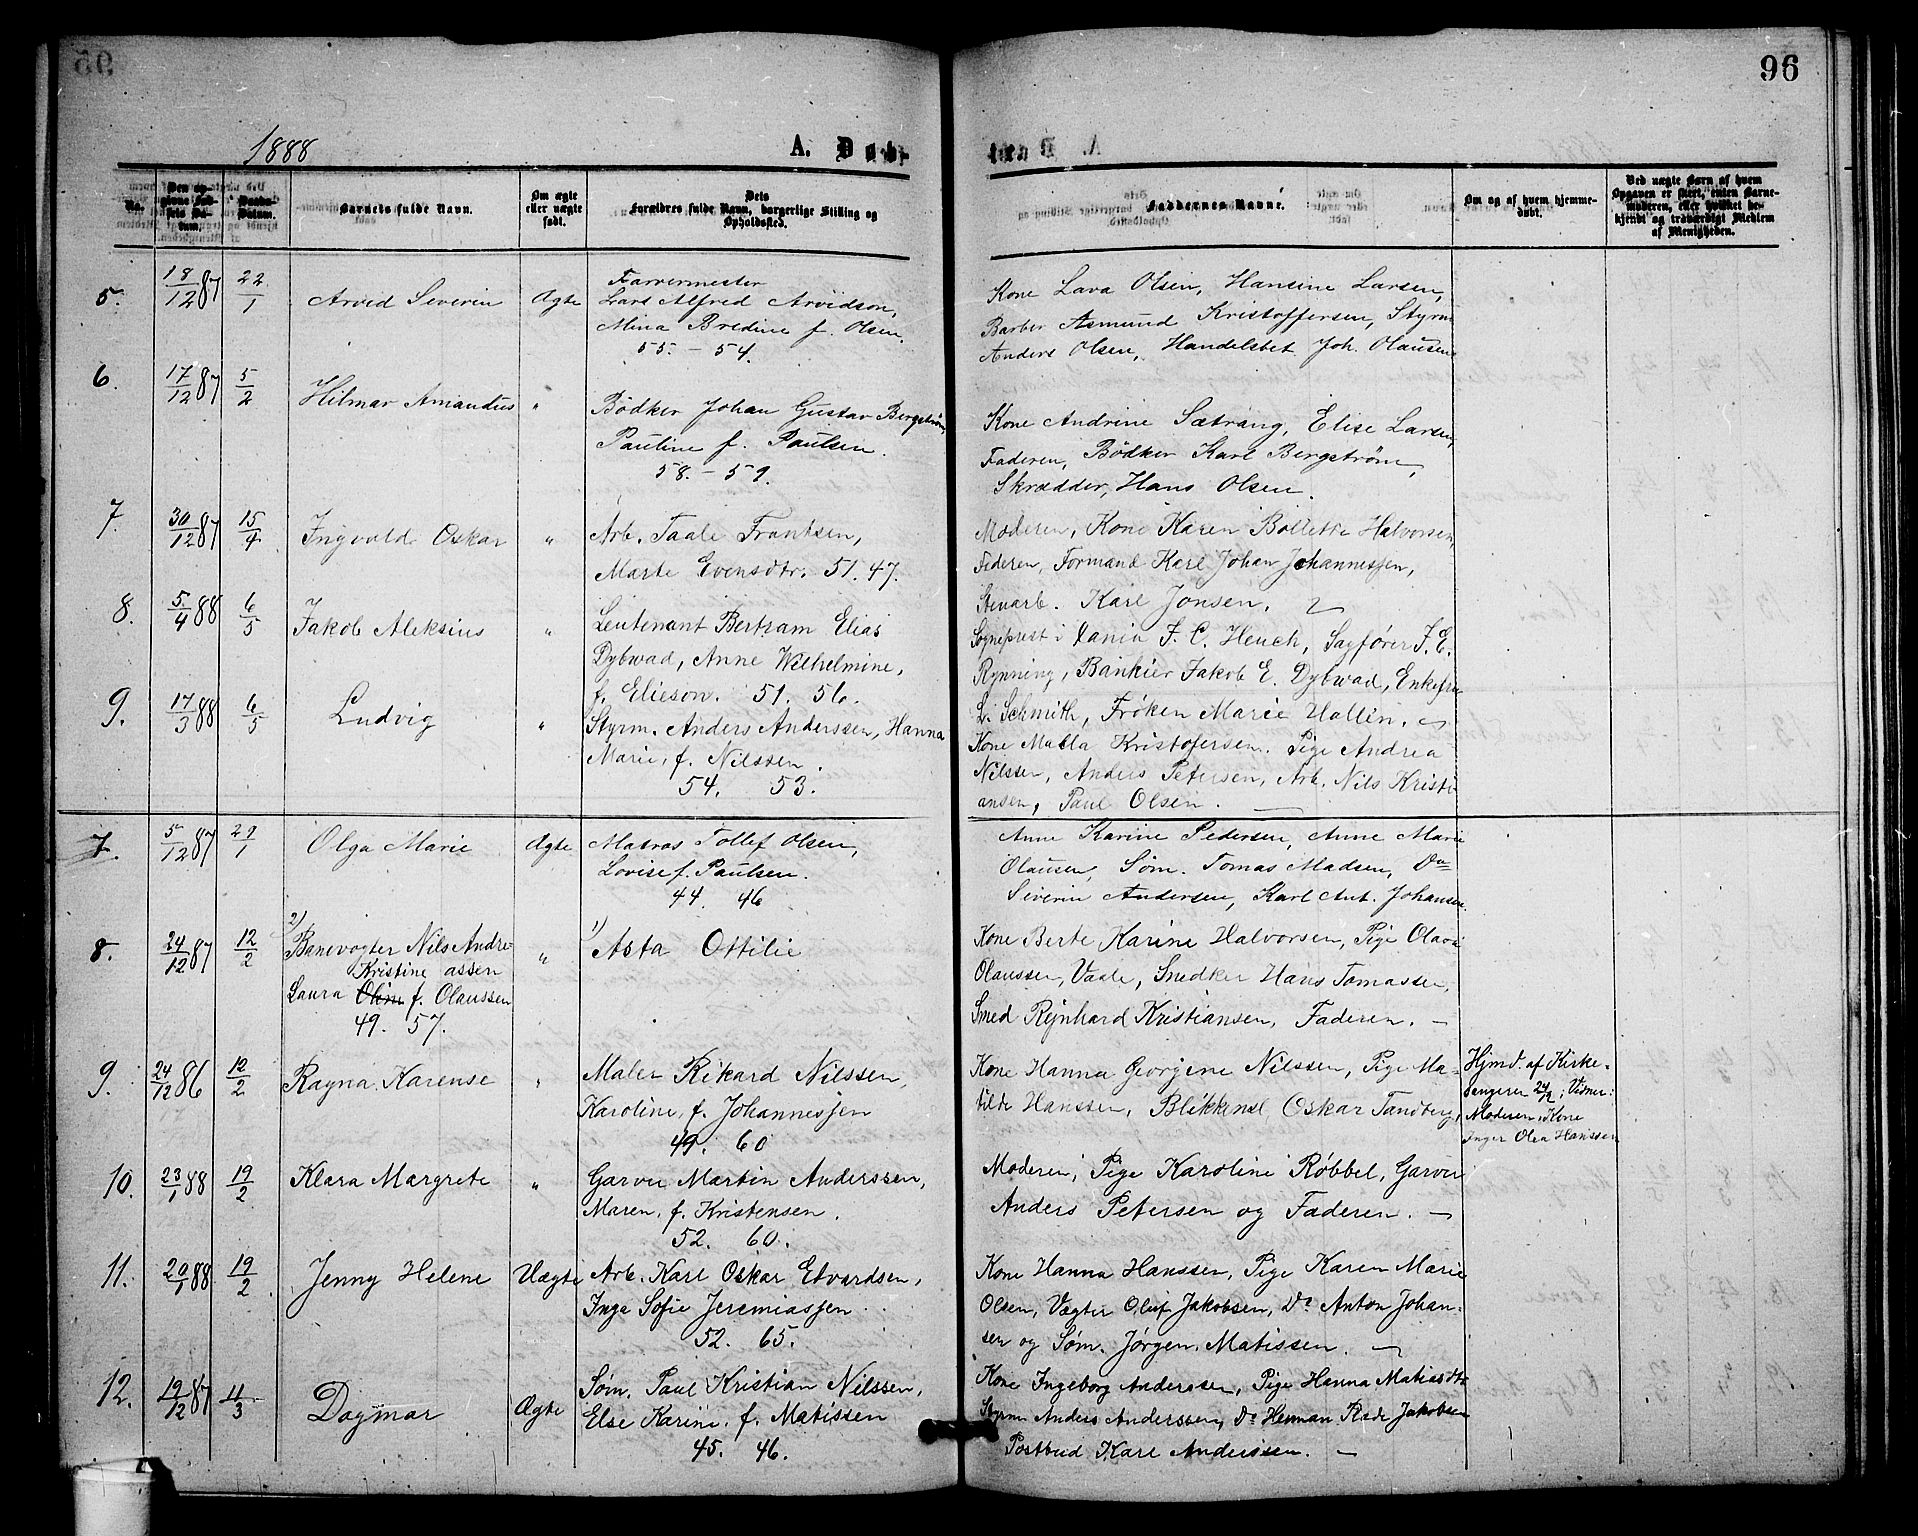 96
1888
A. Døb-
No.
Den op-
givne Fød-
sels Da-
tum.
Daabs-
Datum.
Barnets fulde Navn.
Om ægte
eller uægte
født.
Dets
Forældres fulde Navn, borgerlige Stilling og
Opholdssted.
Faddernes Navne.
Om og af hvem hjemme-
døbt.
Ved uægte Barn af hvem
Opgaven er skeet, enten Barne-
moderen, eller hvilket be-
kjendt og troværdigt Medlem
af Menigheden.
5. 18/12 87 22/1 Arvid Severin Ægte
Farvermester
Lars Alfred Arvidson,
Mina Bredine f. Olsen.
55. - 54.
Kone Lava Olsen, Hansine Larsen,
Barber Asmund Kristoffersen, Styrm
Anders Olsen, Handelsbet. Joh. Olausen
6. 17/12 87 5/2 Hilmar Amandus "
Bødker Johan Gustav Bergstrøm,
Pauline f. Paulsen.
58. - 59.
Kone Andrine Sætrang, Elise Larsen,
Faderen, Bødker Karl Bergstrøm,
Skrædder, Hans Olsen.
7. 30/12 87 15/4 Ingvald Oskar "
Arb. Taale Frantsen,
Marte Evensdtr. 51. 47.
Moderen, Kone Karen Bollette Halvorsen,
Federen, Formand Karl Johan Johannesjen,
Stenarb. Karl Jonsen.
8. 5/4 88 6/5 Jakob Aleksius "
Leutenant Bertram Elias
Dybwad, Anne Wilhelmine,
f. Elieson. 51. 56.
Sogneprest i J. C. Heuch, Sagfører J. E.
Rynning, Bankier Jakob E. Dybwad, Enkefru
L. Schmith, Frøken Marie Vallin.
9. 17/3 88 6/5 Ludvig "
Styrm. Anders Anderssen, Hanna
Marie, f. Nilssen.
54. 53.
Kone Malla Kristofersen. Pige Andrea
Nilssen, Anders Petersen, Arb. Nils Kristi
ansen, Paul Olsen.
7. 5/12 87 29/1 Olga Marie Ægte
Matros Tollef Olsen,
Lovise f. Paulsen.
44. 46
Anne Karine Pedersen, Anne Marie
Olausen, Søm. Tomas Madsen, Do
Severin Andersen, Karl Ant. Johansen.
8. 24/12 87 12/2
2) Banevogter Nils Andre-
Kristine assen
Laura Olin f. Olaussen
49. 57.
"
1) Asta Ottilie
Kone Berte Karine Halvorsen, Pige Olava
Olaussen, Vaale, Snedker Hans Tomassen,
Smed Rejnhard Kristiansen, Faderen. -
9. 24/12 86 12/2 Ragna Karense "
Maler Rikard Nilssen,
Karoline, f. Johannesjen
49. 60
Kone Hanna Georgine Nilssen, Pige Ma-
tilde Hanssen, Blikkensl Oskar Tandberg,
Hjmd. af Kirke-
sangeren 24/2; Vidner:
Moderen, Kone
Inger Olea Hanssen
10. 23/1 88 19/2 Klara Margrete "
Garver Martin Anderssen,
Maren, f. Kristensen.
52. 60.
Moderen, Pige Karoline Røbbel, Garver
Anders Petersen og Faderen. -
11. 20/1 88 19/2 Jenny Helene Uægte
Arb. Karl Oskar Edvardsen,
Inga Sofie Jeremiasjen
52. 65.
Kone Hanna Hanssen, Pige Karen Marie
Olsen, Vægter Oluf Jakobsen, Do Anton Johan-
sen og Søm. Jørgen Matissen. -
12. 19/12 87 11/3 Dagmar Ægte
Søm. Paul Kristian Nilssen,
Else Karine, f. Matissen
45. 46.
Kone Ingeborg Anderssen, Pige Hanna Matiasdtr
Styrm Anders Anderssen, Do Herman Rade Jakobsen
Postbud Karl Anderssen. -